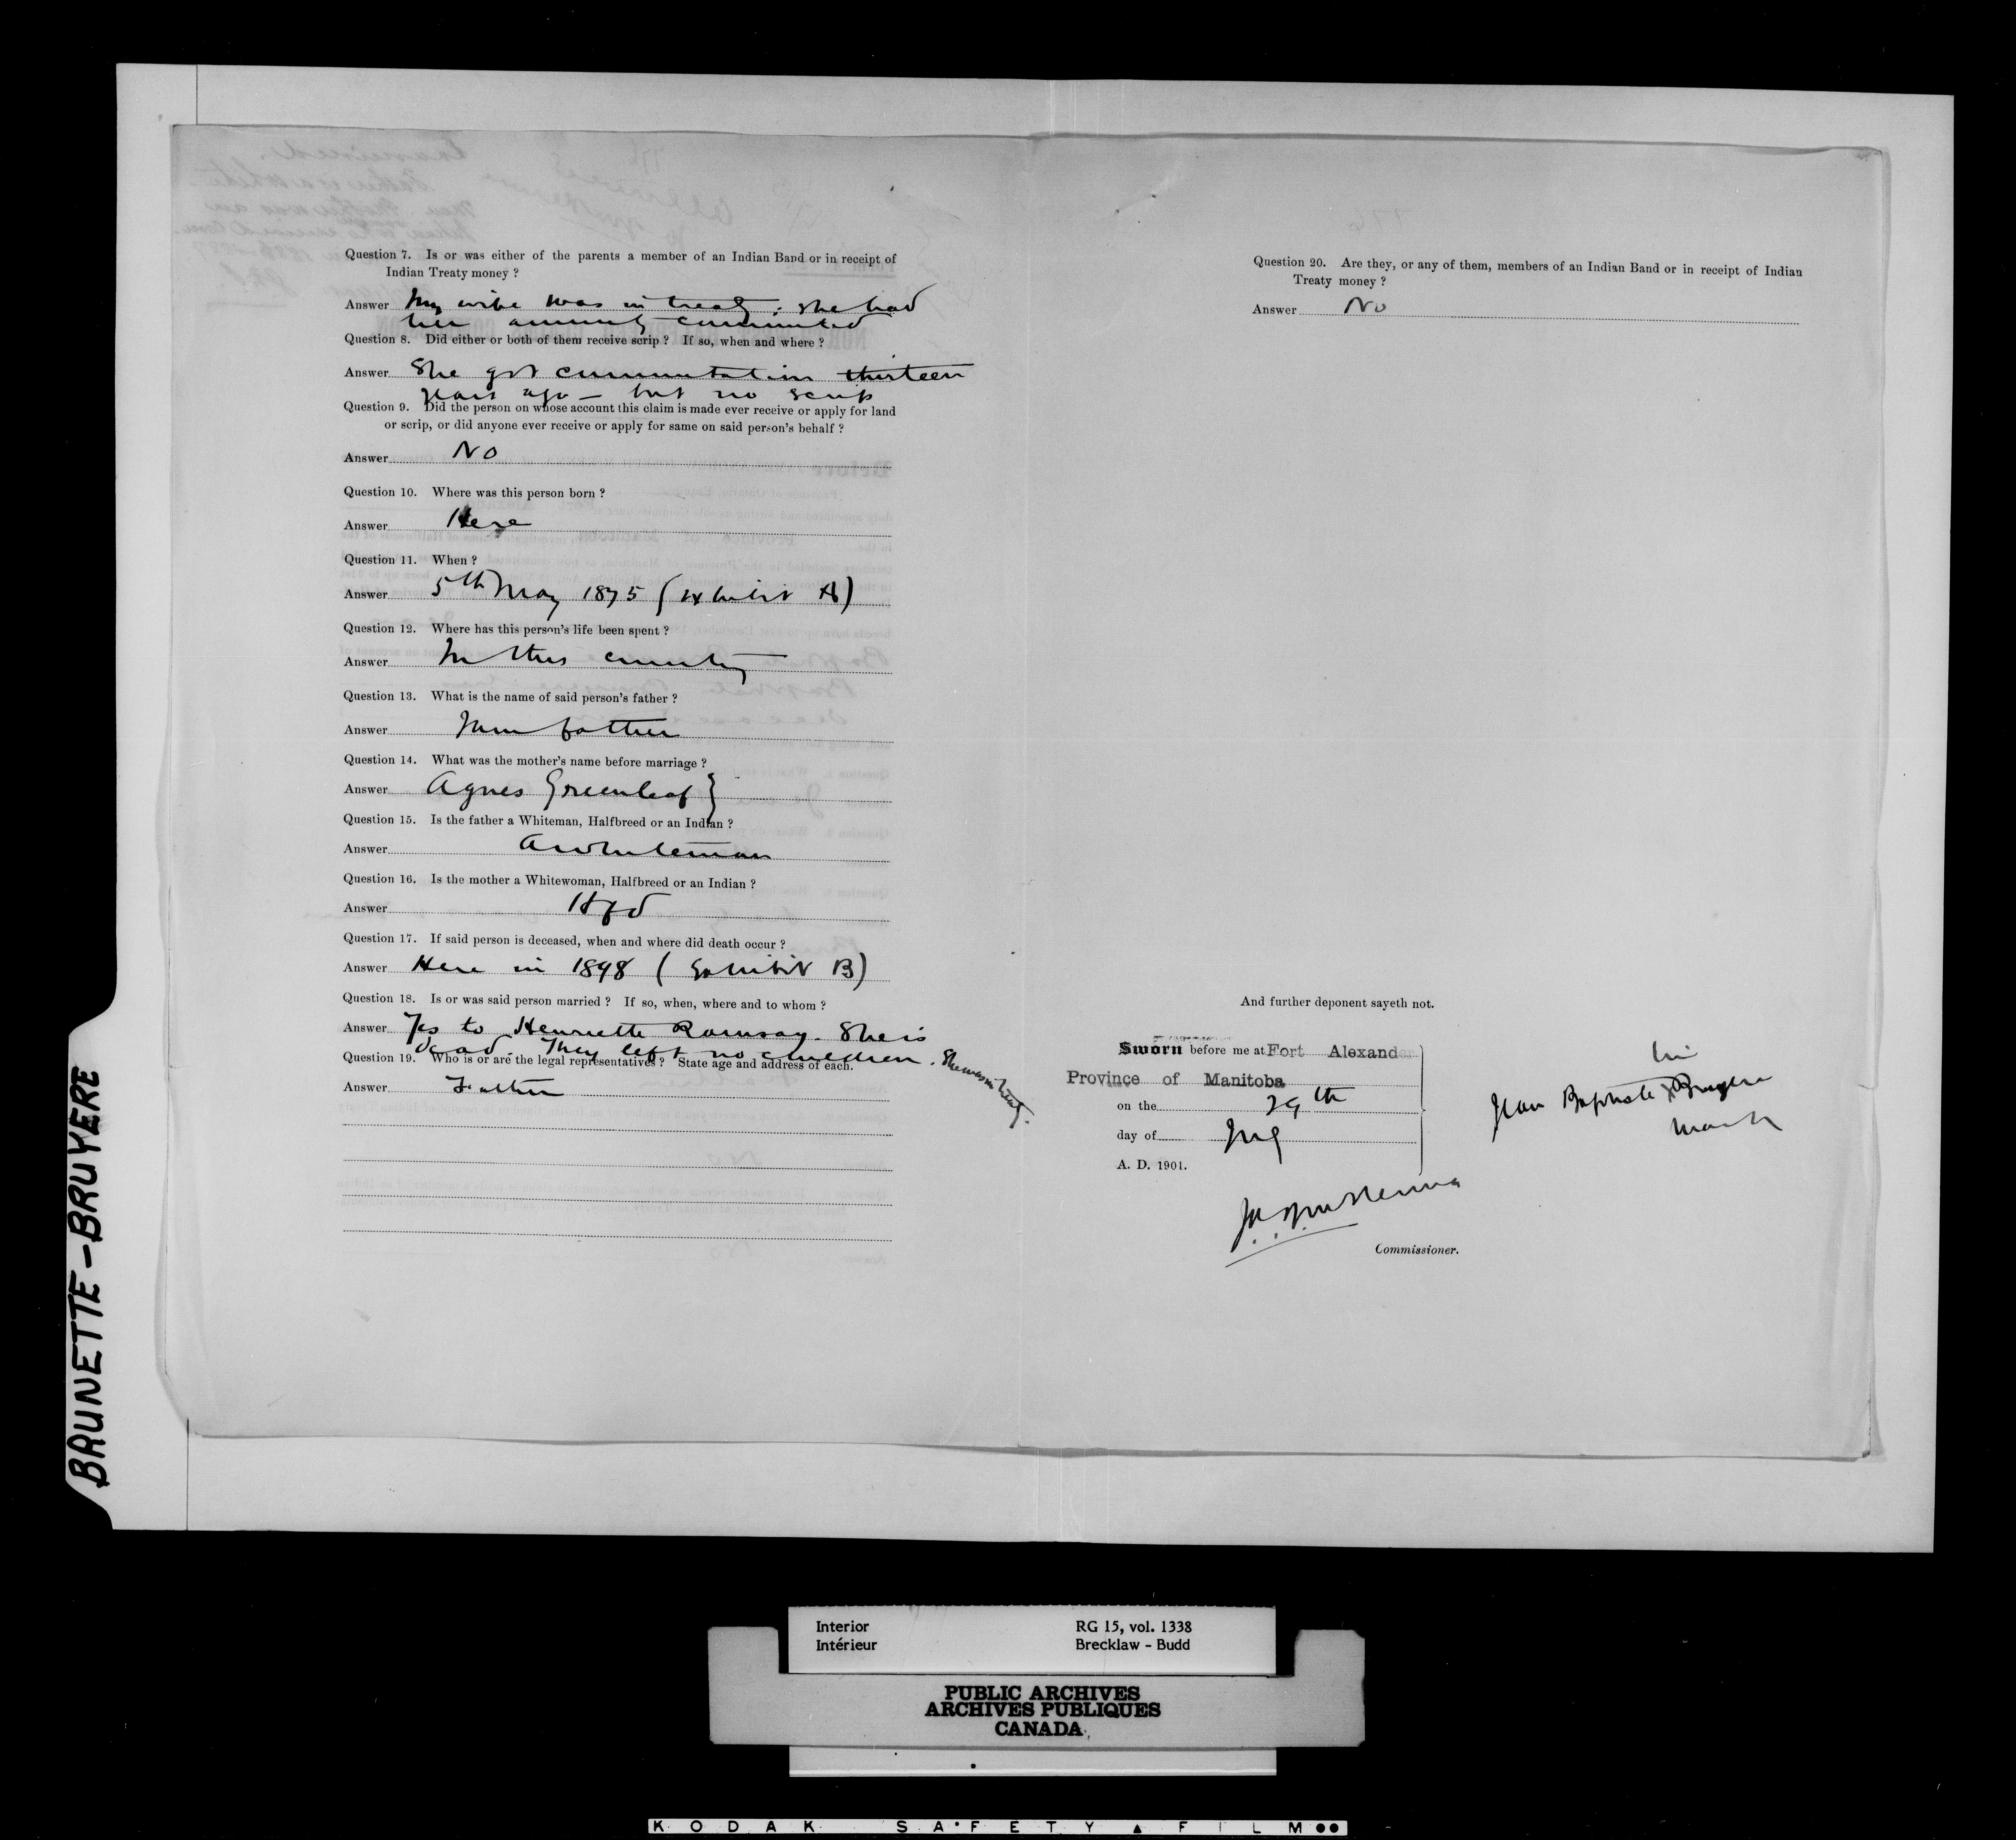 Question 7. Is or was either of the parents a member of an Indian Band or in receipt of
Indian Treaty money ?
Answer My wife was in treaty; she had
her annuity commuted
Question 8. Did either or both of them receive scrip ? If so, when and where ?
Answer She got commutation thirteen
years ago — but no scrip
Question 9. Did the person on whose account this claim is made ever receive or apply for land
or scrip, or did anyone ever receive or apply for same on said person's behalf ?
Answer No
Question 10. Where was this person born ?
Answer Here
Question 11. When ?
Answer 5th May 1875 (Exhibit A)
Question 12. Where has this person's life been spent ?
Answer In this country
Question 13. What is the name of said person's father ?
Answer father
Question 14. What was the mother's name before marriage ?
Answer Agnes Greenleaf }
Question 15. Is the father a Whiteman, Halfbreed or an Indian ?
Answer A whiteman
Question 16. Is the mother a Whitewoman, Halfbreed or an Indian ?
Answer Hfd
Question 17. If said person is deceased, when and where did death occur ?
Answer Here in 1898 (Exhibit B)
Question 18. Is or was said person married ? If so, when, where and to whom ?
Answer Yes to Henriette Ramsay. She is
dead. They left no children. She was in treaty.
Question 19. Who is or are the legal representatives ? State age and address of each.
Answer Father
Question 20. Are they, or any of them, members of an Indian Band or in receipt of Indian
Treaty money ?
Answer No
And further deponent sayeth not.
Sworn before me at Fort Alexand
Province of Manitoba
on the 29th
day of
A. D. 1901.
his
Jean Baptiste X Bruyere
mark
Commissioner.
BRUNETTE-BRUYERE
Interior
Intérieur
RG 15, vol. 1338
Brecklaw - Budd
PUBLIC ARCHIVES
ARCHIVES PUBLIQUES
CANADA
KODAK SAFETY FILM